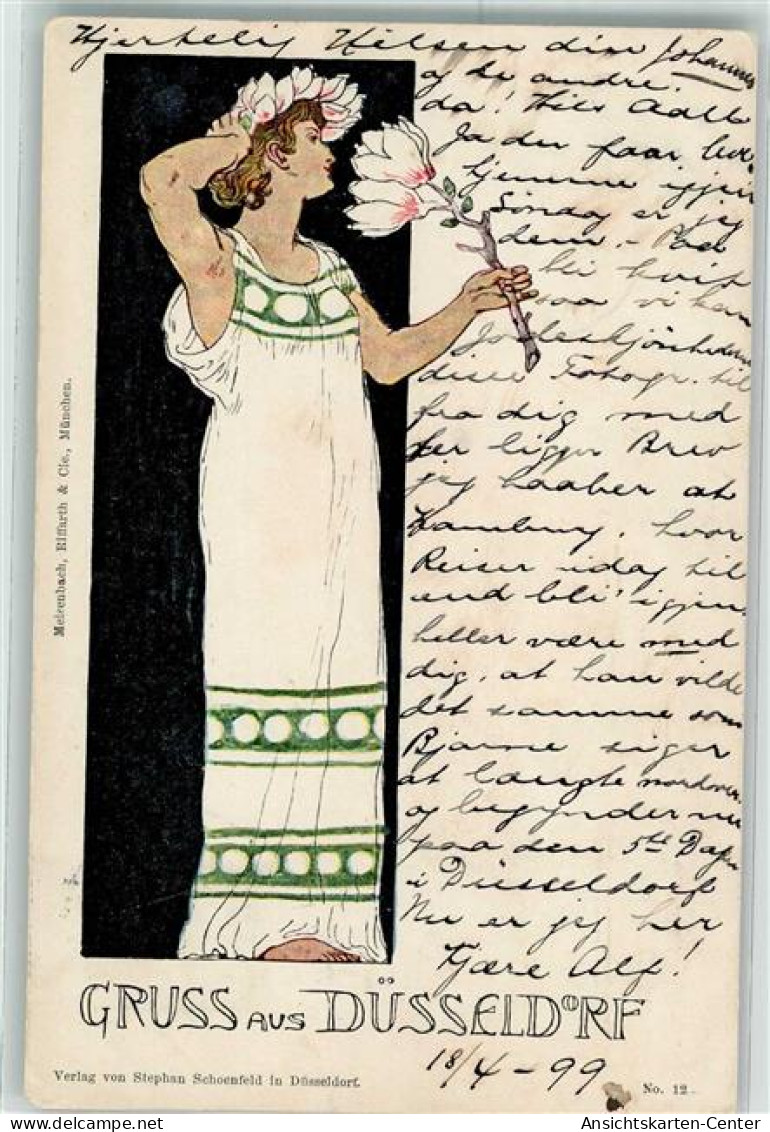 Kjære Alf!
Nu er jeg her
i Düsseldorf
paa den 5te Dag
og begynder nu
at længte nordover.
Bjarne siger
det samme som
dig, at han vilde
heller være med
end bli' igjen.
Reiser idag til
Hamburg, hvor
jeg haaber at
der ligger Brev
fra dig med
disse Fotogr. til
saa vi kan
bli kvit
dem. - Paa
Söndag er jeg
hjemme igjen
Ja du faar leve
da! Hils
og de andre.
Hjertelig Hilsen din Johannes
Meisenbach, Riffarth & Cie., München.
GRUSS AUS DÜSSELDORF
18/4 - 99
Verlag von Stephan Schoenfeld in Düsseldorf.
No. 12
Ansichtskarten-Center